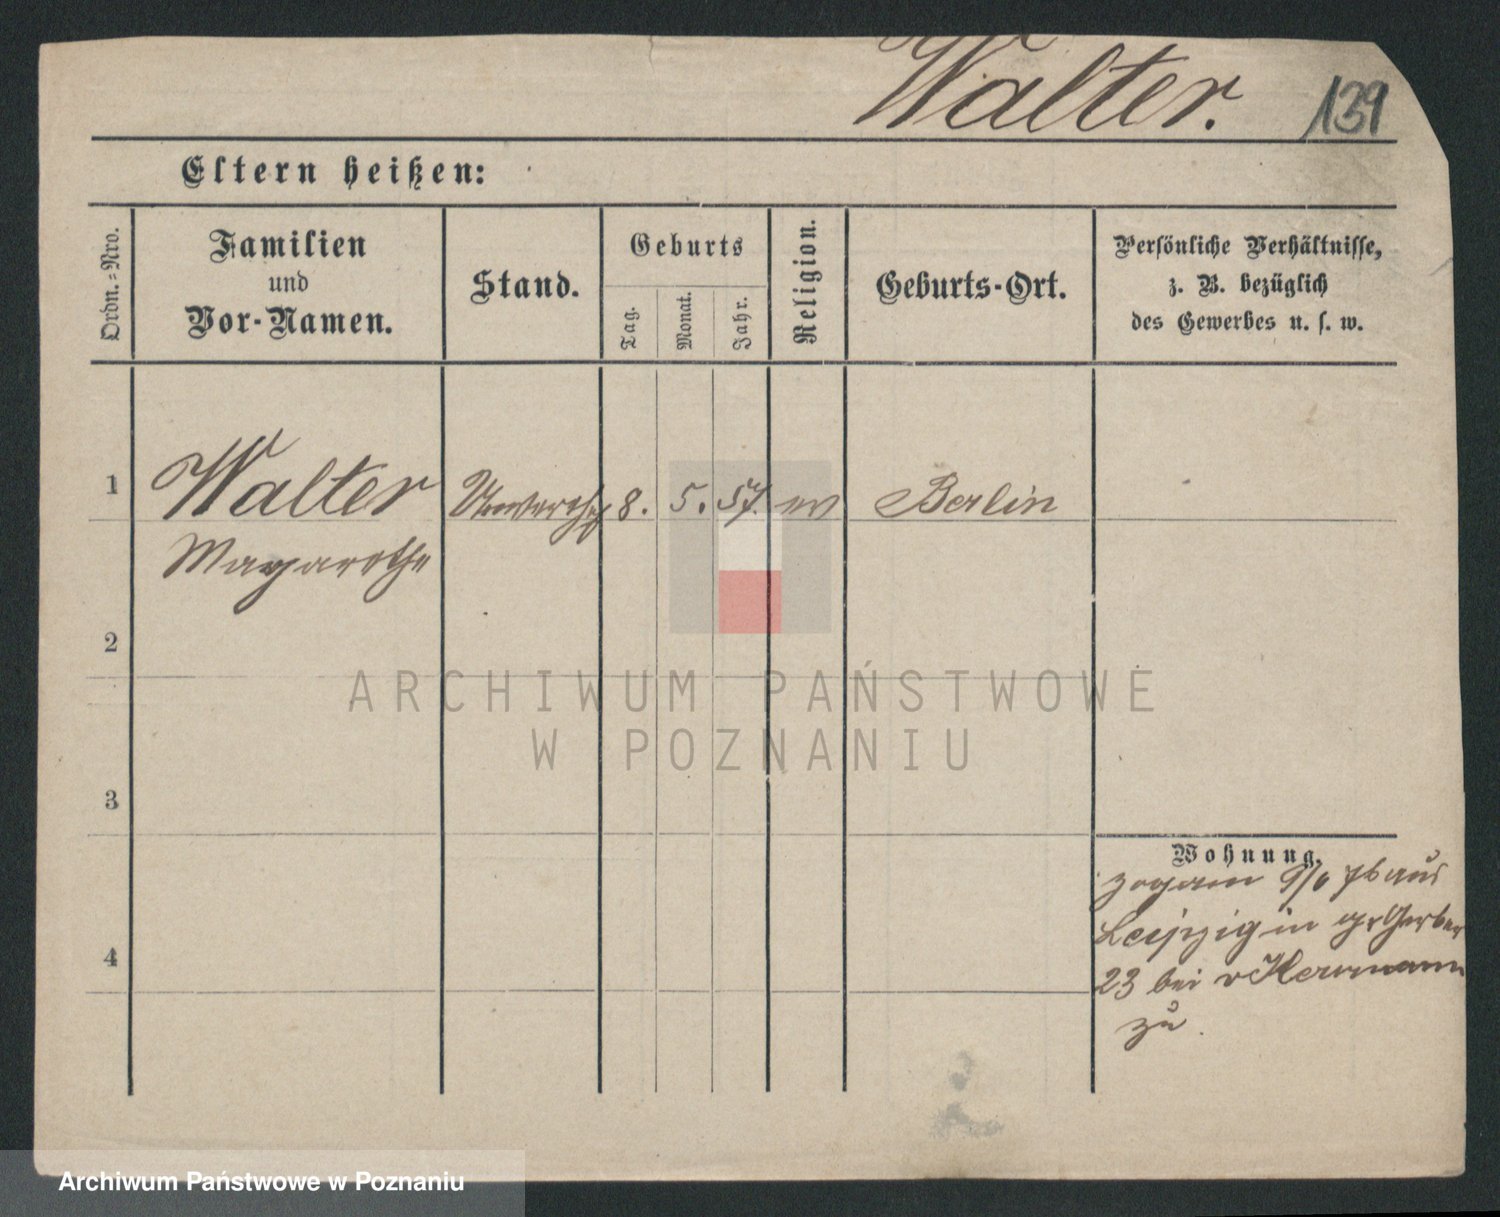 Walter. 139
Eltern heißen:
Ordn.-Nro.
Familien
und
Vor-Namen.
Stand.
Geburts
Tag.
Monat.
Jahr.
Religion.
Geburts-Ort.
Persönliche Verhältnisse,
z. B. bezüglich
des Gewerbes u. s. w.
1 Walter 8. 5. 57. ev Berlin
Magarethe
2
3
4
Wohnung.
zog am 9/6 76 aus
Leipzig in gr Gerber
23 bei v Herrmann
zu.
ARCHIWUM PAŃSTWOWE
W POZNANIU
Archiwum Państwowe w Poznaniu